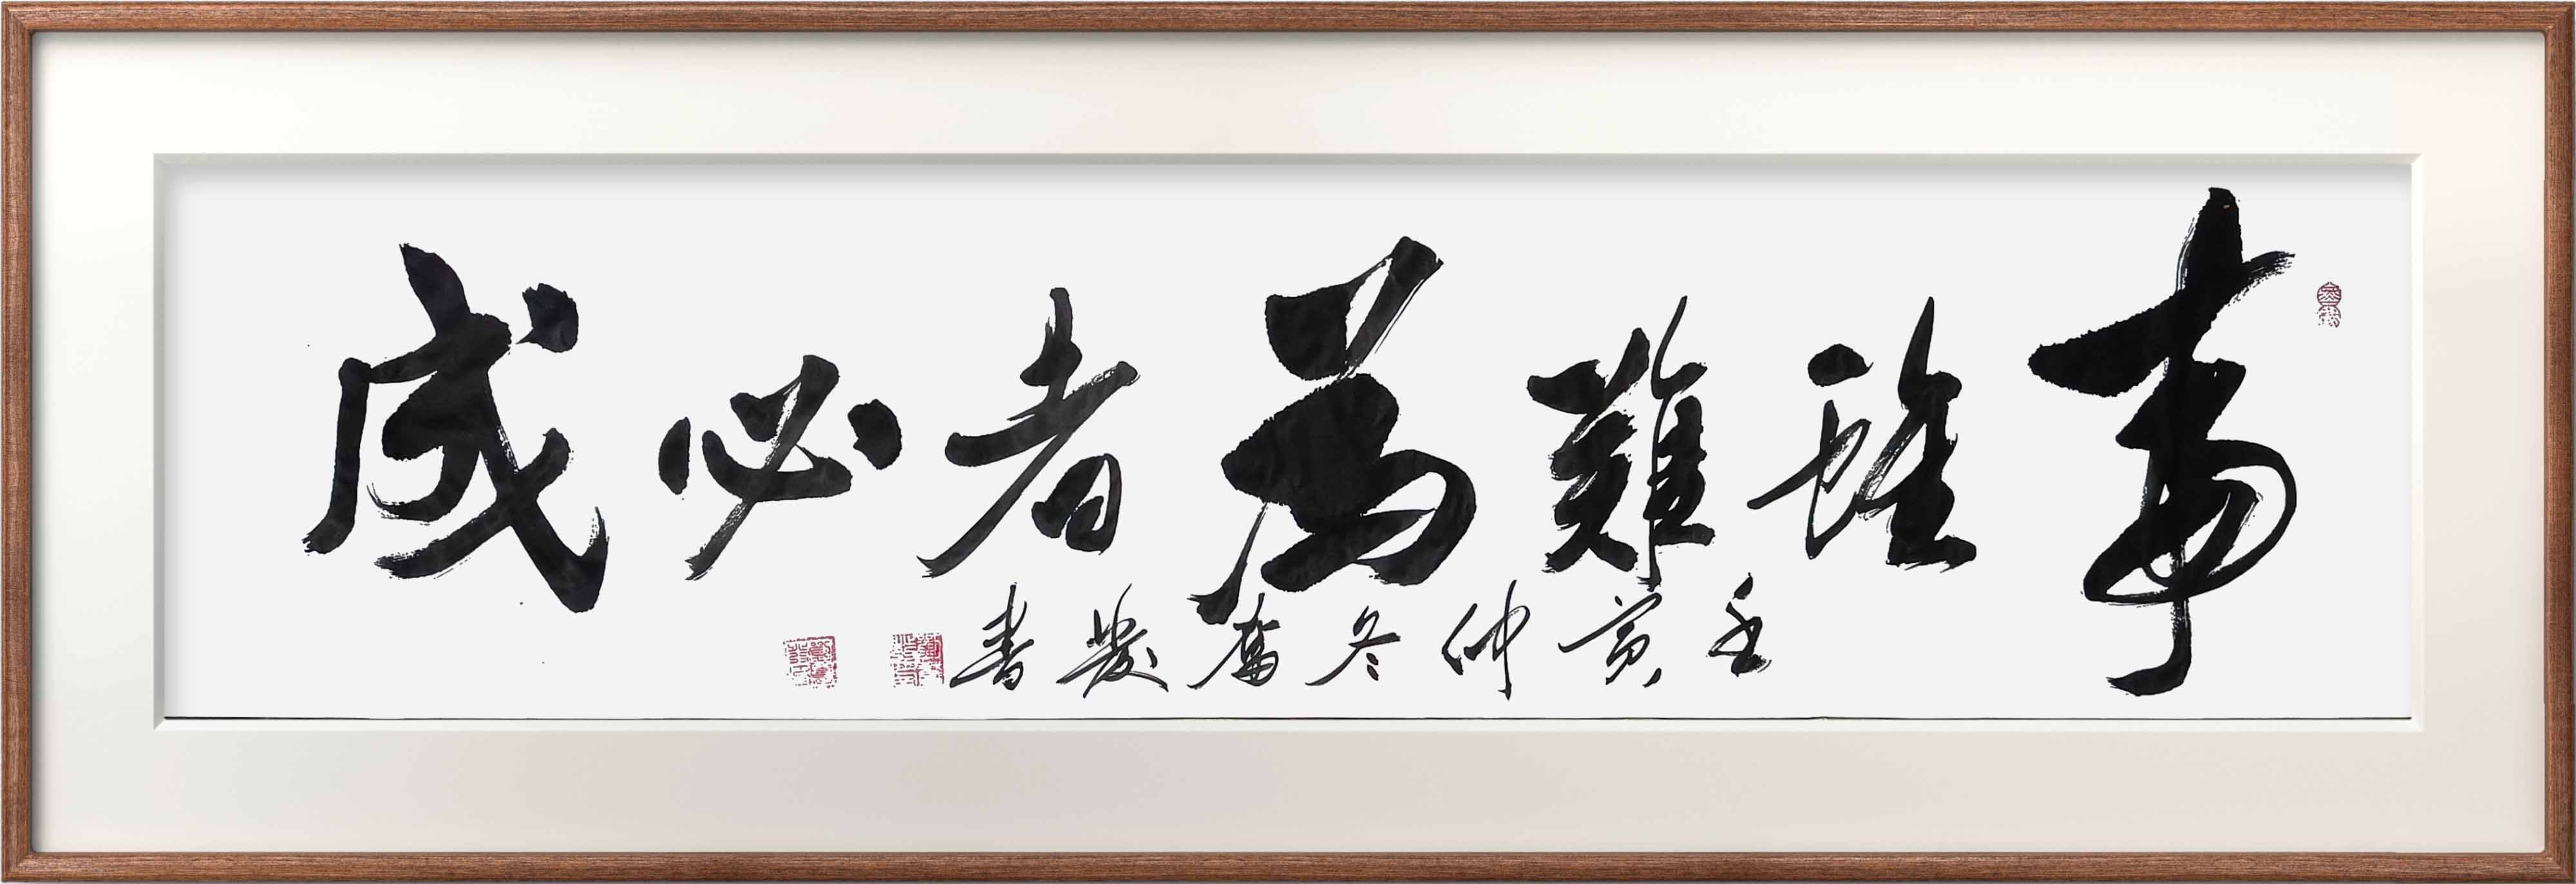 事雖難爲者必成
壬寅仲冬奮發書